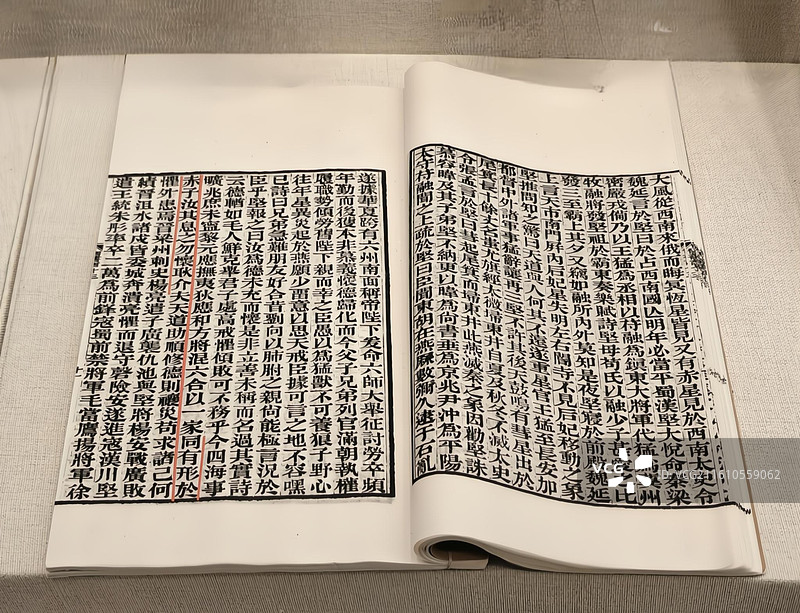 大風從西南來俄而晦冥恆星皆見又有赤星見於西南太史令
魏延言於堅曰於占西南國亡明年必當平蜀漢堅大悅命秦梁
密嚴戎備乃以王猛為丞相以苻融為鎮東大將軍代猛為州
牧融將發堅祖於霸東奏樂賦詩堅母苟氏以融少子甚比
發三至霸上其夕又竊如融所內外莫知是夜堅寢於前殿魏延
上言天市南門屏內后妃星失明左右閽寺不見后妃移動之象
堅推問知之驚曰天道與人何其不遠遂重星官王猛至長安加
都督中外諸軍事猛辭讓再三堅不許其後天鼓鳴有彗星出於
尾箕長十餘丈名蚩尤旗經太微掃東井自夏及秋冬不滅太史
令張孟言於堅曰彗起尾箕而掃東井此燕滅秦之象因勸堅誅
慕容暐及其子弟堅不納更以暐為尚書垂為京兆尹沖為平陽
太守苻融聞之上疏於堅曰臣聞東胡在燕歷數彌久逮于石亂
遂據華夏跨有六州南面稱帝陛下爰命六師大舉征討勞卒頻
年勤而後獲本非慕義懷德歸化而今父子兄弟列官滿朝執權
履職勢傾勞舊陛下親而幸之臣愚以為猛獸不可養狼子野心
往年星異災起於燕願少留意以思天戒臣據可言之地不容嘿
已詩曰兄弟急難朋友好合昔劉向以肺腑之親尚能極言況於
臣乎堅報之曰汝為德未充而懷是非立善未稱而名過其實詩
云德輶如毛人鮮克舉君子處高戒懼傾敗可不務乎今四海事
曠兆庶未寧黎元應撫夷狄應和方將混六合以一家同有形於
赤子汝其息之勿懷耿介夫天道助順修德則禳災苟求諸己何
懼外患焉晉梁州刺史楊亮遣子廣襲仇池與堅將楊安戰廣敗
績晉沮水諸戍皆委城奔潰亮懼而退守磬險安遂進寇漢川堅
遣王統朱彤率卒二萬為前鋒寇蜀前禁將軍毛當鷹揚將軍徐
VCG